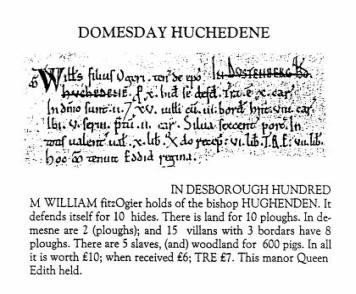 DOMESDAY HUCHEDENE
Will's filius Ogeri. ten' de epo. In DUSTENBERG HD.
HUCHEDENE. p x. hid' se defd'. Tra. e. x. car'.
In dnio sunt. ii. 7 xv. uilli cu. iii. bord' hnt. viii. car'.
Ibi. v. serui. ptu. ii. car'. Silua porc'. In
totis ualent' ual'. x. lib. X do recep'. vi. lib. T.R.E. vii. lib.
Hoc m tenuit Eddid regina.
IN DESBOROUGH HUNDRED
M WILLIAM fitzOgier holds of the bishop HUGHENDEN. It
defends itself for 10 hides. There is land for 10 ploughs. In de-
mesne are 2 (ploughs); and 15 villans with 3 bordars have 8
ploughs. There are 5 slaves, (and) woodland for 600 pigs. In all
it is worth £10; when received £6; TRE £7. This manor Queen
Edith held.